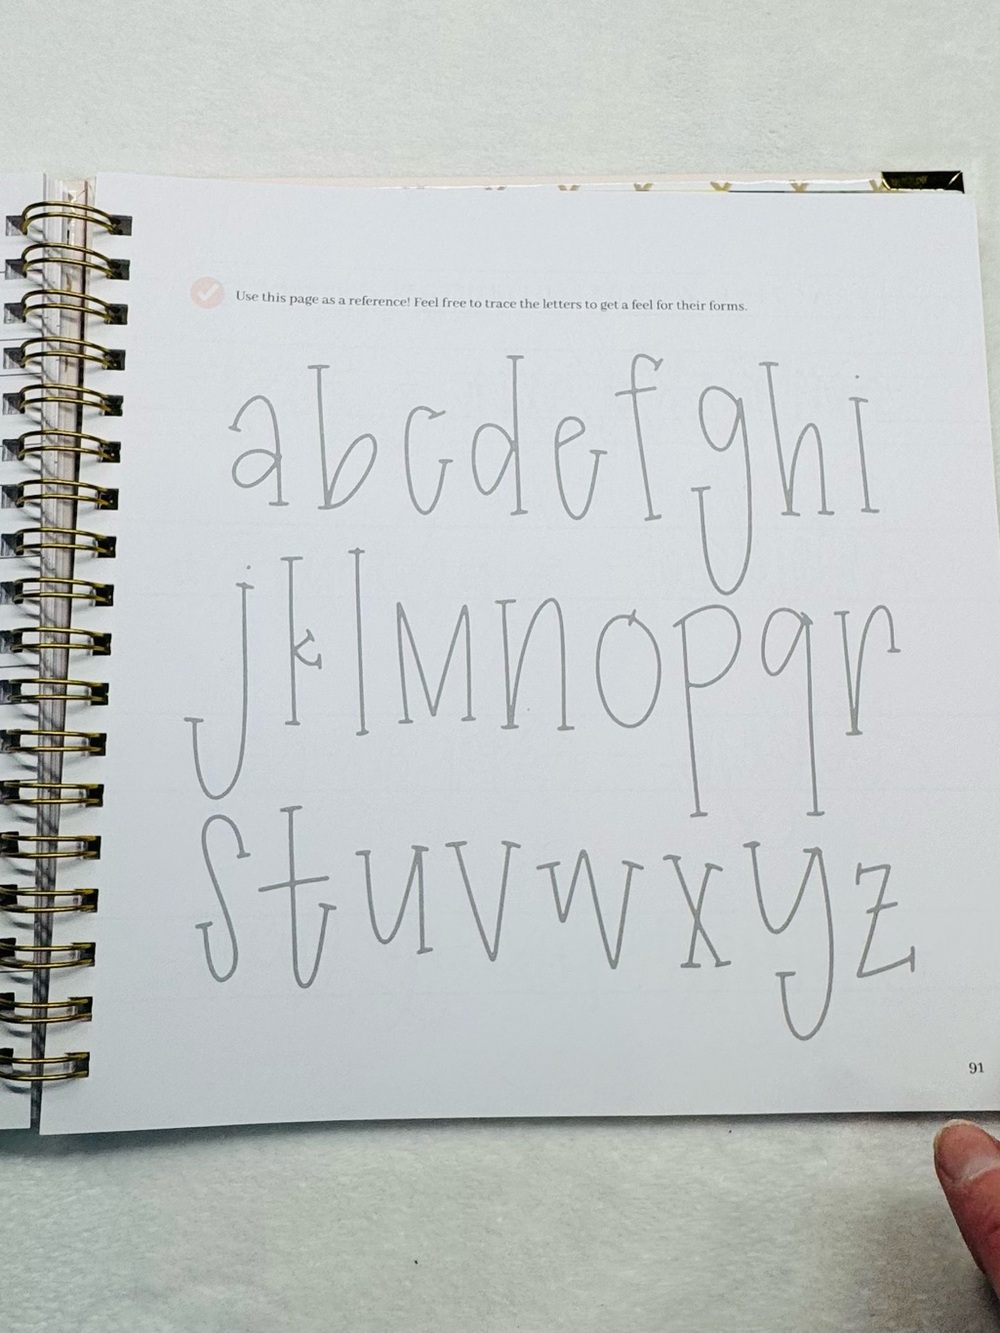 Use this page as a reference! Feel free to trace the letters to get a feel for their forms.
a b c d e f g h i
j k l m n o p q r
s t u v w x y z
91